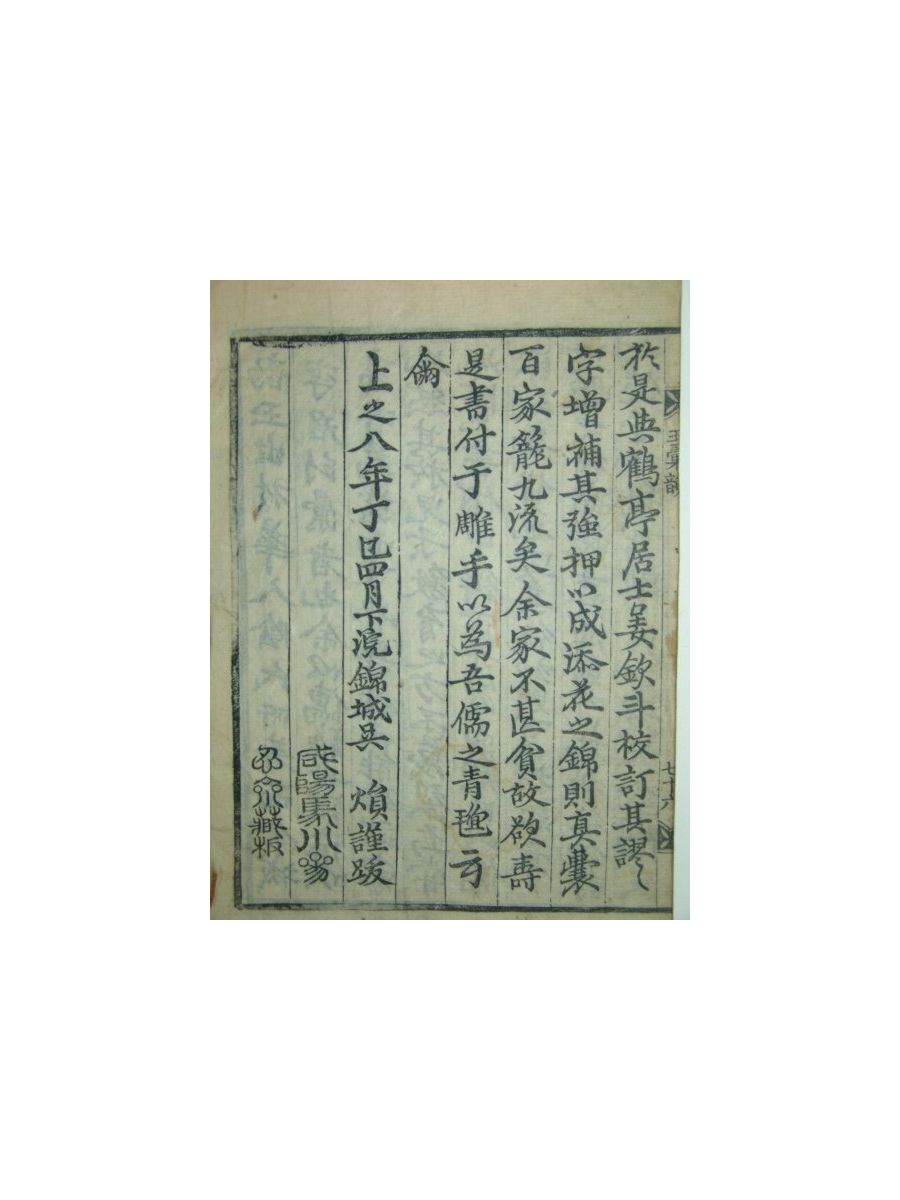 於是與鶴亭居士姜欽斗校訂其謬々
字增補其強押以成添花之錦則真囊
百家籠九流矣余家不甚貧故欲壽
是書付于雕手以為吾儒之青氊云
爾
上之八年丁巳四月下浣錦城吳 熉謹跋
咸陽
藏板
玉彙韻
七十六